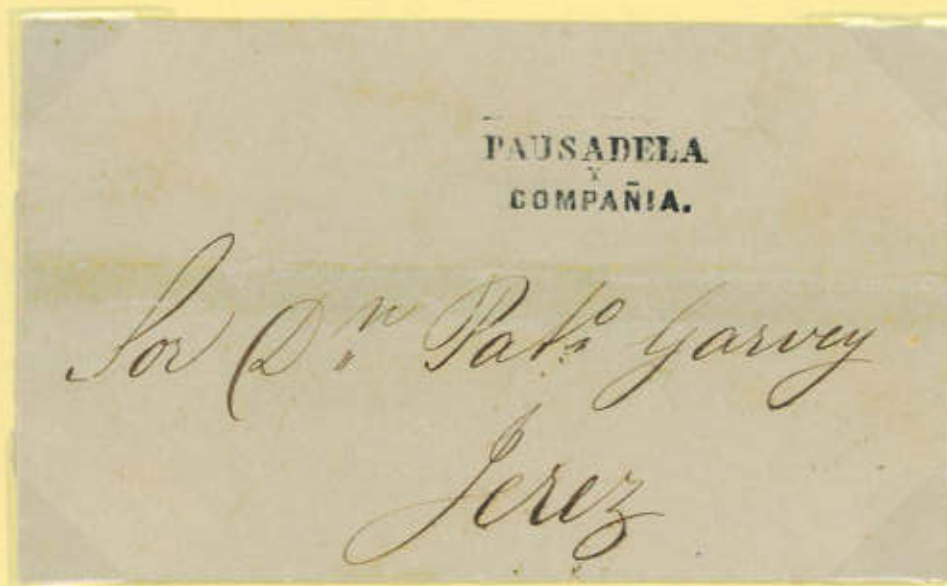 PAUSADELA
Y
COMPAÑIA.
Sor Dn Pato Garvey
Jerez